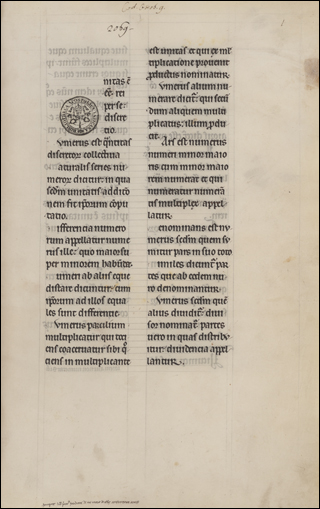 Cod. 3306.9.
2069.
1
nitas ē
eē. rei
per se
discre
tio.
Umerus est qn̄titas
discretor collectiua
aturalis series nu
meror dicitur. in qua
scd̄m unitatis additio
nem fit ipsorum cōpu
tatio.
ifferencia numero
rum appellatur nume
rus ille quo maior su
per minorem habūdat.
umeri ab aliis eque
distare dicuntur. cum
ipsorum ad illos equa
les sunt differentie
Umerus per alium
multiplicatur qui toci
ens coaceruatur sibi q̄
ciens in multiplicante
est unitas et qui ex ml̄
tiplicatione prouenit
productus nominatur.
Umerus alium nu
merare dicit̄. qui secū
dum aliquem multi
plicatus. illum p̄du
cit.
Ars est numerus
numeri minor maio
ris cum minor maio
rem numerat et qui
numeratur numerā
tis multiplex appel
latur.
enominans est nu
merus secdm quem su
mitur pars in suo toto
imiles dicunt̄ par
tes que ab eodem nu
ro denominantur.
Umerus scdm quē
alius diuidit̄. diui
sor nominat̄. partes
uero in quas distribu
itur. diuidencia appel
lantur.